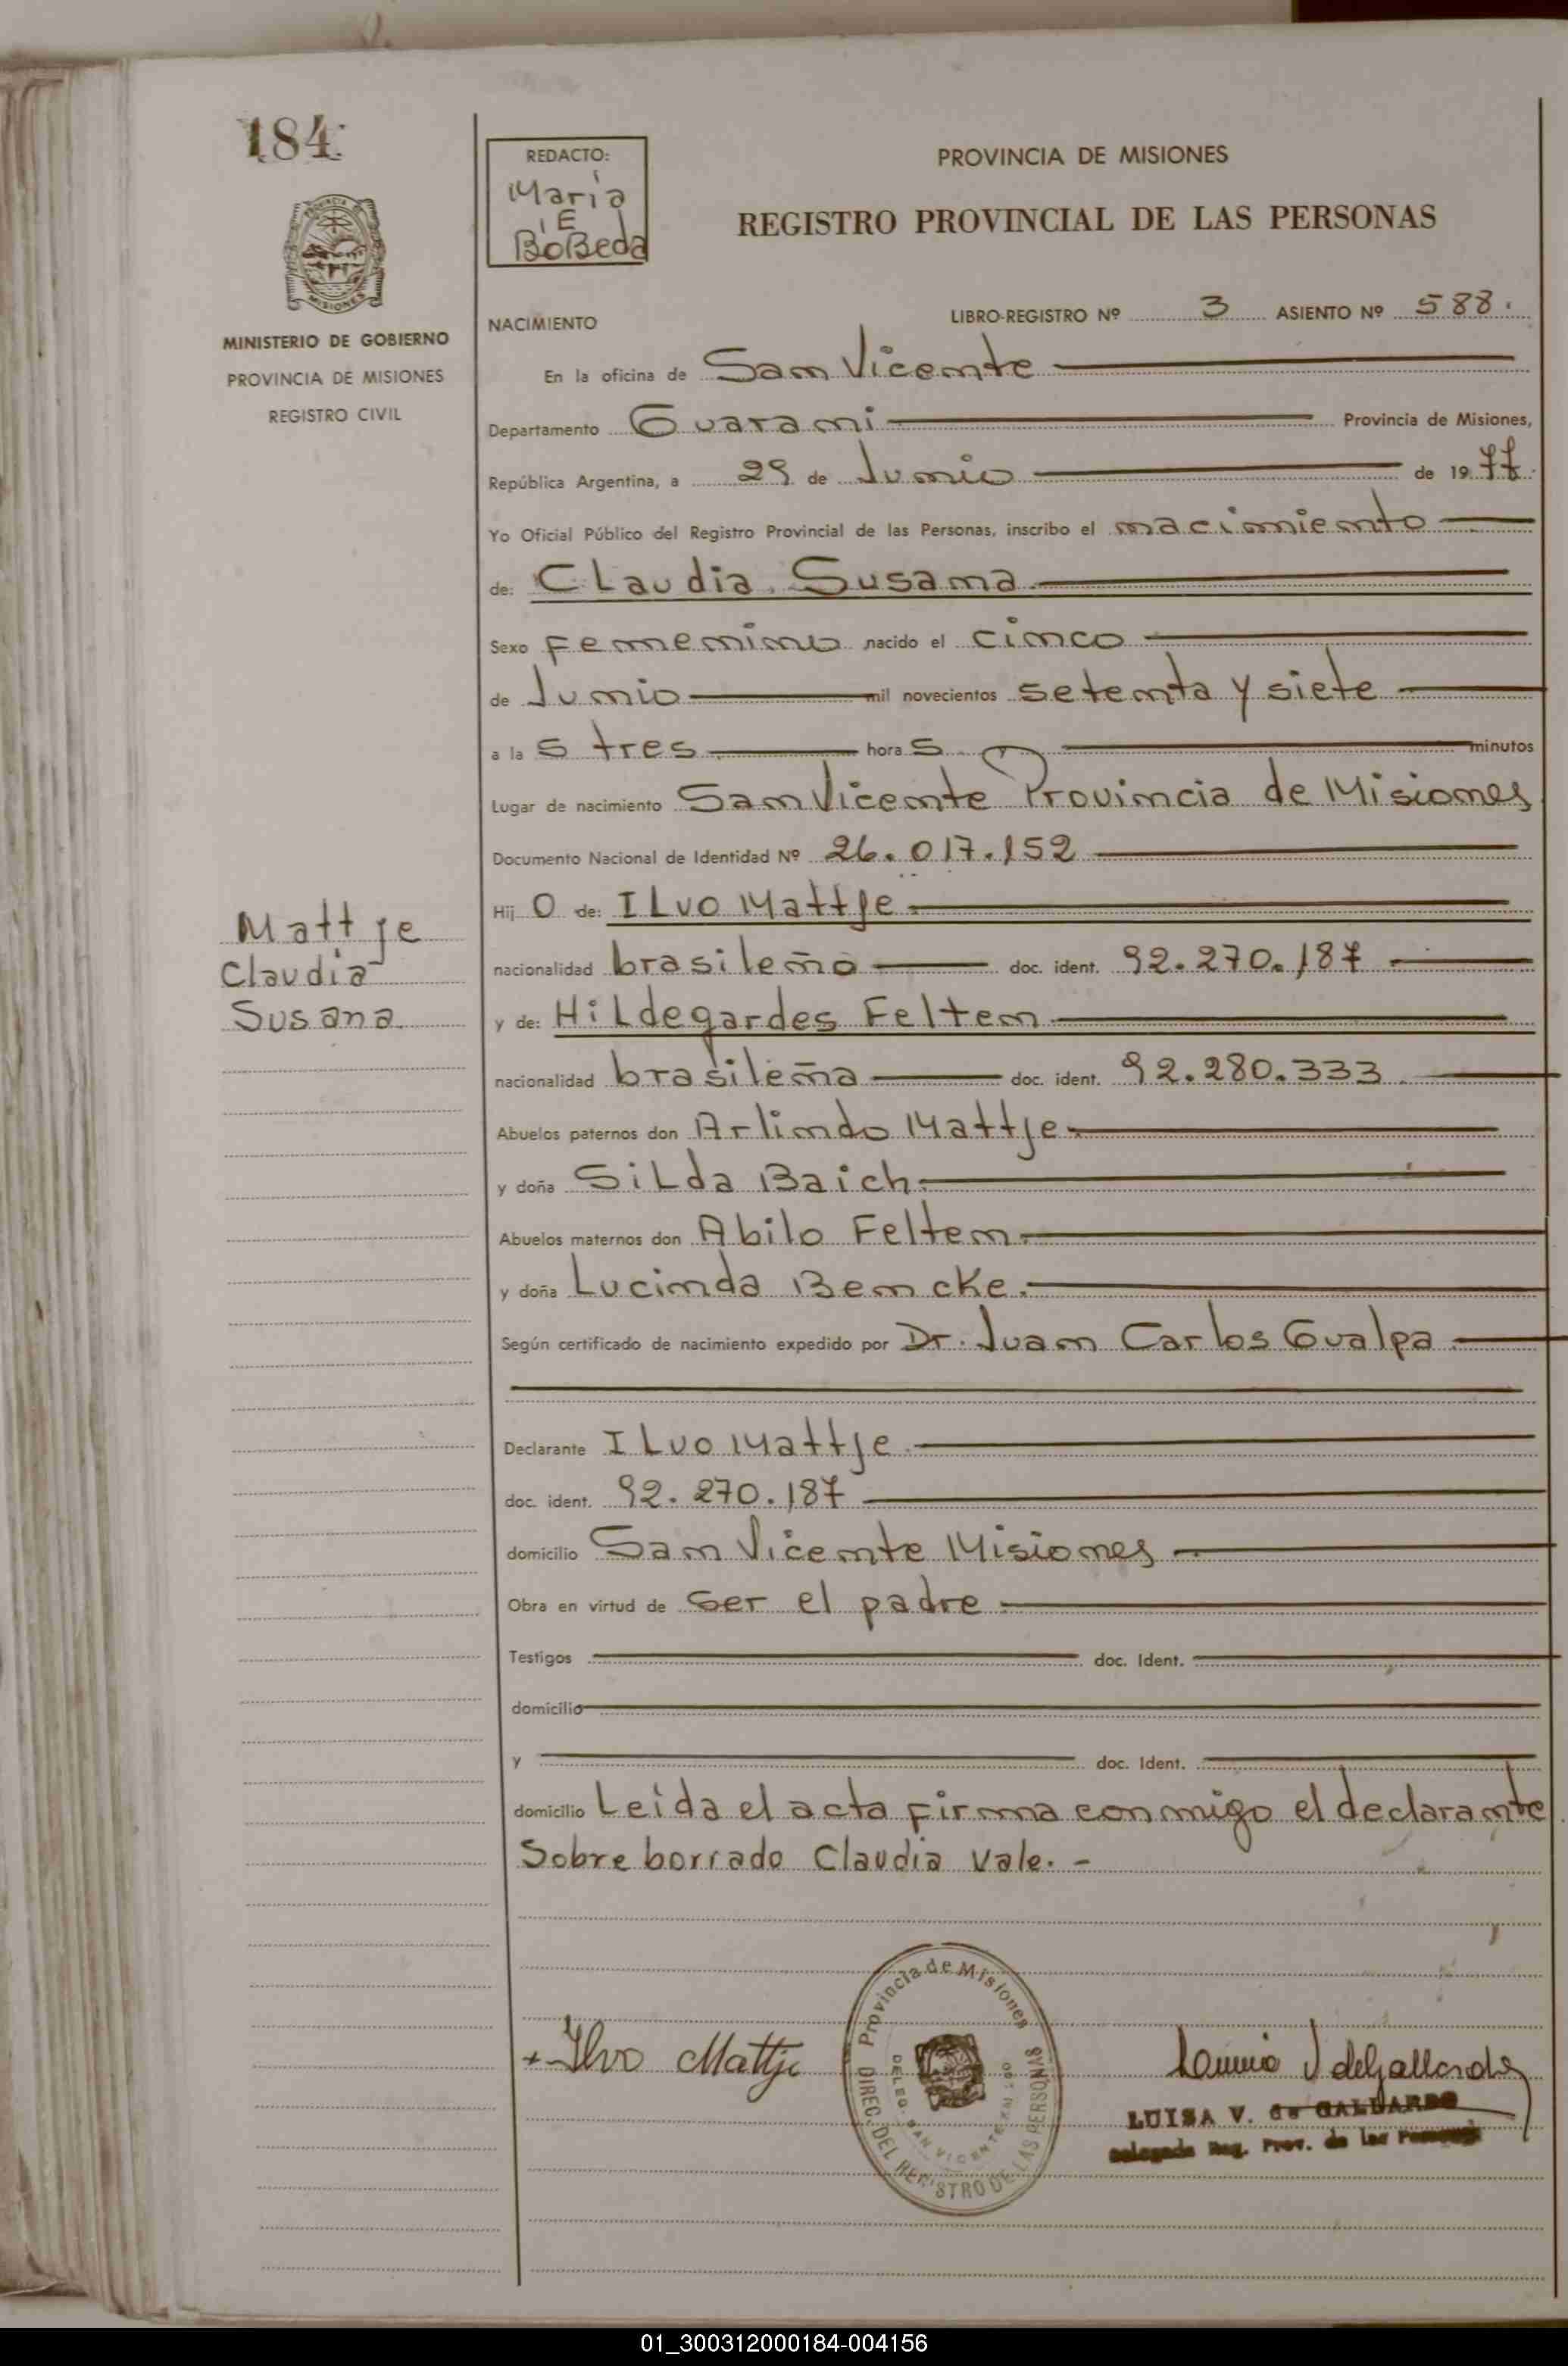 184
REDACTO:
Maria
E
BoBeda
PROVINCIA DE MISIONES
REGISTRO PROVINCIAL DE LAS PERSONAS
MISIONES
MINISTERIO DE GOBIERNO
PROVINCIA DE MISIONES
REGISTRO CIVIL
NACIMIENTO
LIBRO-REGISTRO Nº 3 ASIENTO Nº 588.
En la oficina de San Vicente
Departamento Guarani Provincia de Misiones,
República Argentina, a 29 de Junio de 1977
Yo Oficial Público del Registro Provincial de las Personas, inscribo el nacimiento
de: Claudia Susana
Sexo Femenino nacido el cinco
de Junio mil novecientos setenta y siete
a la s tres hora s minutos
Lugar de nacimiento San Vicente Provincia de Misiones
Documento Nacional de Identidad Nº 26.017.152
Hij o de: ILvo Mattje
nacionalidad brasileño doc. ident. 92.270.187
y de: HiLdegardes Felten
nacionalidad brasileña doc. ident. 92.280.333
Abuelos paternos don Arlindo Mattje
y doña SiLda Baich
Abuelos maternos don Abilo Felten
y doña Lucinda Bencke
Según certificado de nacimiento expedido por Dr. Juan Carlos Gualpa
Declarante ILvo Mattje
doc. ident. 92.270.187
domicilio San Vicente Misiones
Obra en virtud de ser el padre
Testigos doc. Ident.
domicilio
y doc. Ident.
domicilio Leida el acta firma conmigo el declarante
Sobre borrado Claudia Vale. -
Mattje
Claudia
Susana
Ilvo Mattje
Provincia de Misiones
DIREC. DEL REGISTRO DE LAS PERSONAS
DELEG. SAN VICENTE
LUISA V. de GALLARDO
Delegada Reg. Prov. de las Personas
01_300312000184-004156